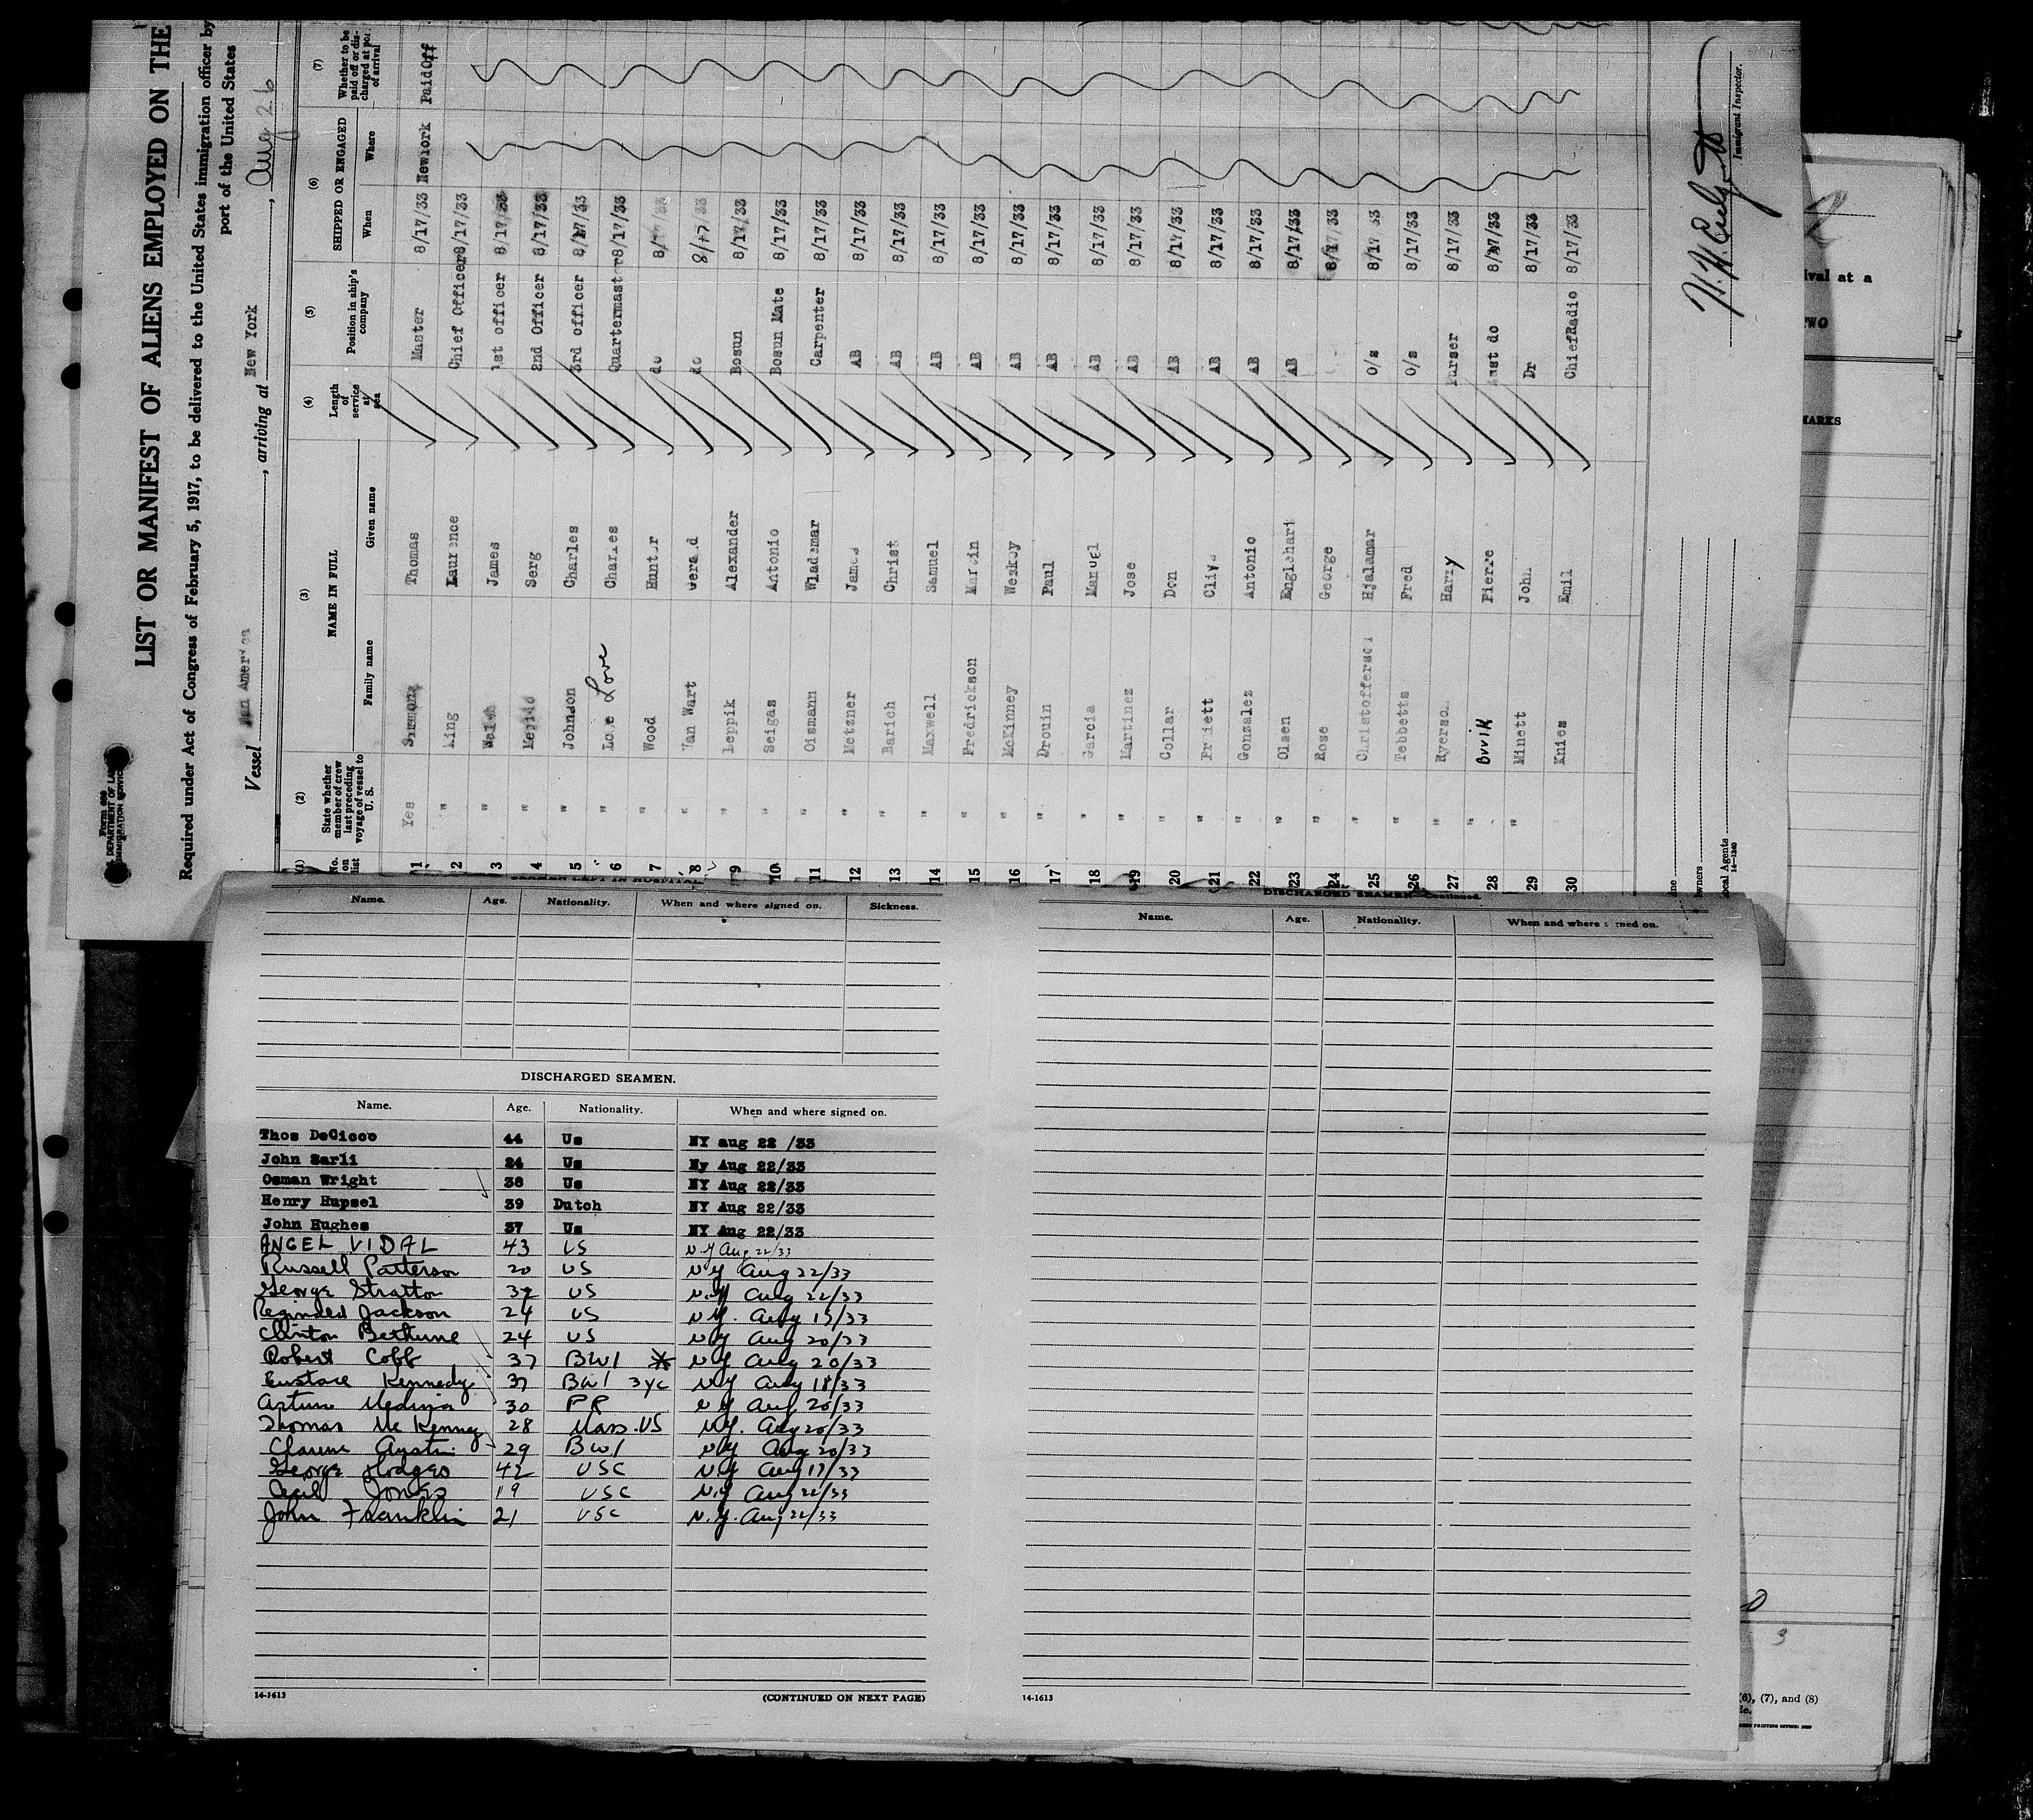 LIST OR MANIFEST OF ALIENS EMPLOYED ON THE
Required under Act of Congress of February 5, 1917, to be delivered to the United States immigration officer by
port of the United States
Vessel Pan American, arriving at New York, Aug 26
Form 689
U.S. DEPARTMENT OF LABOR
IMMIGRATION SERVICE
(1) (2) (3) (4) (5) (6) (7)
No. on list
State whether member of crew last preceding voyage of vessel to U. S.
NAME IN FULL
Family name Given name
Length of service at sea
Position in ship's company
SHIPPED OR ENGAGED
When Where
Whether to be paid off or discharged at port of arrival
1 Yes Simmons Thomas Master 8/17/33 Newyork Paid Off
2 " King Laurence Chief Officer 8/17/33
3 " Walsh James 1st officer 8/17/33
4 " Serg 2nd Officer 8/17/33
5 " Johnson Charles 3rd officer 8/17/33
6 " Love Charles Quartermaster 8/17/33
7 " Wood Hunter do 8/17/33
8 " Van Wart Gerald do 8/17/33
9 " Leppik Alexander Bosun 8/17/33
10 " Seigas Antonio Bosun Mate 8/17/33
11 " Oismann Wlademar Carpenter 8/17/33
12 " Metzner James AB 8/17/33
13 " Barich Christ AB 8/17/33
14 " Maxwell Samuel AB 8/17/33
15 " Fredrickson Martin AB 8/17/33
16 " McKinney Wesley AB 8/17/33
17 " Drouin Paul AB 8/17/33
18 " Garcia Manuel AB 8/17/33
19 " Martinez Jose AB 8/17/33
20 " Collar Don AB 8/17/33
21 " Clive AB 8/17/33
22 " Gonzalez Antonio AB 8/17/33
23 " Olsen Englehart AB 8/17/33
24 " Rose George 8/17/33
25 " Christofferson Hjalamar O/s 8/17/33
26 " Tebbetts Fred O/s 8/17/33
27 " Ryerson Harry Purser 8/17/33
28 " Bvvik Pierre Asst do 8/17/33
29 " Minett John Dr 8/17/33
30 Knies Emil ChiefRadio 8/17/33
Immigrant Inspector.
Local Agents
14-1240
SEAMEN LEFT IN HOSPITAL.
Name. Age. Nationality. When and where signed on. Sickness.
DISCHARGED SEAMEN.
Name. Age. Nationality. When and where signed on.
Thos DeCicco 44 Us NY aug 22 /33
John Sarli 24 Us Ny Aug 22/33
Osman Wright 38 Us NY Aug 22/33
Henry Hupsel 39 Dutch NY Aug 22/33
John Hughes 37 Us NY Aug 22/33
ANGEL VIDAL 43 US N.Y Aug 22/33
Russell Patterson 20 US NY Aug 22/33
George Stratton 32 US N.Y Aug 22/33
Reginded Jackson 24 US NY. Aug 19/33
Clinton Bethune 24 US NY Aug 20/33
Robert Cobb 37 BWI NY Aug 20/33
Eustace Kennedy 37 BWI 3yc NY Aug 18/33
Arturo Medina 30 PR NY Aug 20/33
Thomas McKenney 28 Mass. US NY. Aug 20/33
Clarence Austin 29 BWI NY Aug 20/33
George Hodges 42 USC NY Aug 17/33
Cecil Jones 19 USC N.Y Aug 22/33
John Franklin 21 USC N.Y. Aug 22/33
14-1613
(CONTINUED ON NEXT PAGE)
DISCHARGED SEAMEN—Continued.
Name. Age. Nationality. When and where signed on.
14-1613
val at a
TWO
MARKS
3
(6), (7), and (8)